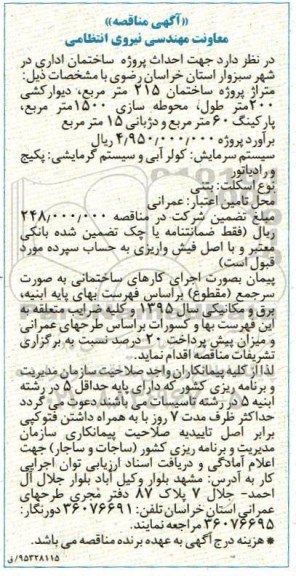 «آگهی مناقصه»
معاونت مهندسی نیروی انتظامی
در نظر دارد جهت احداث پروژه ساختمان اداری در
شهر سبزوار استان خراسان رضوی با مشخصات ذیل:
متراژ پروژه ساختمان ۲۱۵ متر مربع، دیوارکشی
۲۰۰متر طول، محوطه سازی ۱۵۰۰متر مربع،
پارکینگ ۶۰ متر مربع و دژبانی ۱۵ متر مربع
برآورد پروژه ۴/۹۵۰/۰۰۰/۰۰۰ ریال
سیستم سرمایش: کولر آبی و سیستم گرمایشی: پکیج
و رادیاتور
نوع اسکلت: بتنی
محل تامین اعتبار: عمرانی
مبلغ تضمین شرکت در مناقصه ۲۴۸/۰۰۰/۰۰۰
ریال (فقط ضمانتنامه یا چک تضمین شده بانکی
معتبر و با اصل فیش واریزی به حساب سپرده مورد
قبول است)
پیمان بصورت اجرای کارهای ساختمانی به صورت
سرجمع (مقطوع) براساس فهرست بهای پایه ابنیه،
برق و مکانیکی سال ۱۳۹۵ و کلیه ضرایب متعلقه به
این فهرست بها و کسورات براساس طرحهای عمرانی
و میزان پیش پرداخت ۲۰ درصد نسبت به برگزاری
تشریفات مناقصه اقدام نماید.
لذا از کلیه پیمانکاران واجد صلاحیت سازمان مدیریت
و برنامه ریزی کشور که دارای پایه حداقل ۵ در رشته
ابنیه ۵ در رشته تاسیسات می باشند دعوت می گردد
حداکثر ظرف مدت ۷ روز با به همراه داشتن فتوکپی
برابر اصل تاییدیه صلاحیت پیمانکاری سازمان
مدیریت و برنامه ریزی کشور (ساجات و ساجار) جهت
اعلام آمادگی و دریافت اسناد ارزیابی توان اجرایی
کار به آدرس: مشهد بلوار وکیل آباد بلوار جلال آل
احمد- جلال ۷ پلاک ۸۷ دفتر مجری طرحهای
عمرانی استان خراسان تلفن: ۳۶۰۷۶۶۹۱ دورنگار:
۳۶۰۷۶۶۹۵ مراجعه نمایند.
* هزینه درج آگهی به عهده برنده مناقصه می باشد.
۹۵۳۲۸۱۱۵/ق